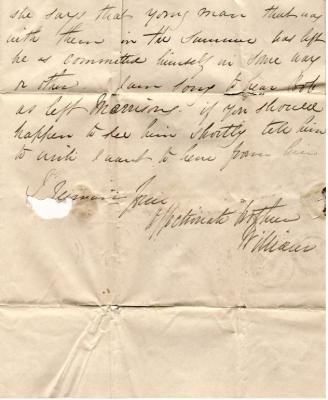 she says that young man that was
with them in the Summer has left
he as committed himself in some way
or other I am sorry to hear Bob
as left Morrisons if you should
happen to see him Shortly tell him
to write I want to here from him
I remain your
affectionate Brother
William